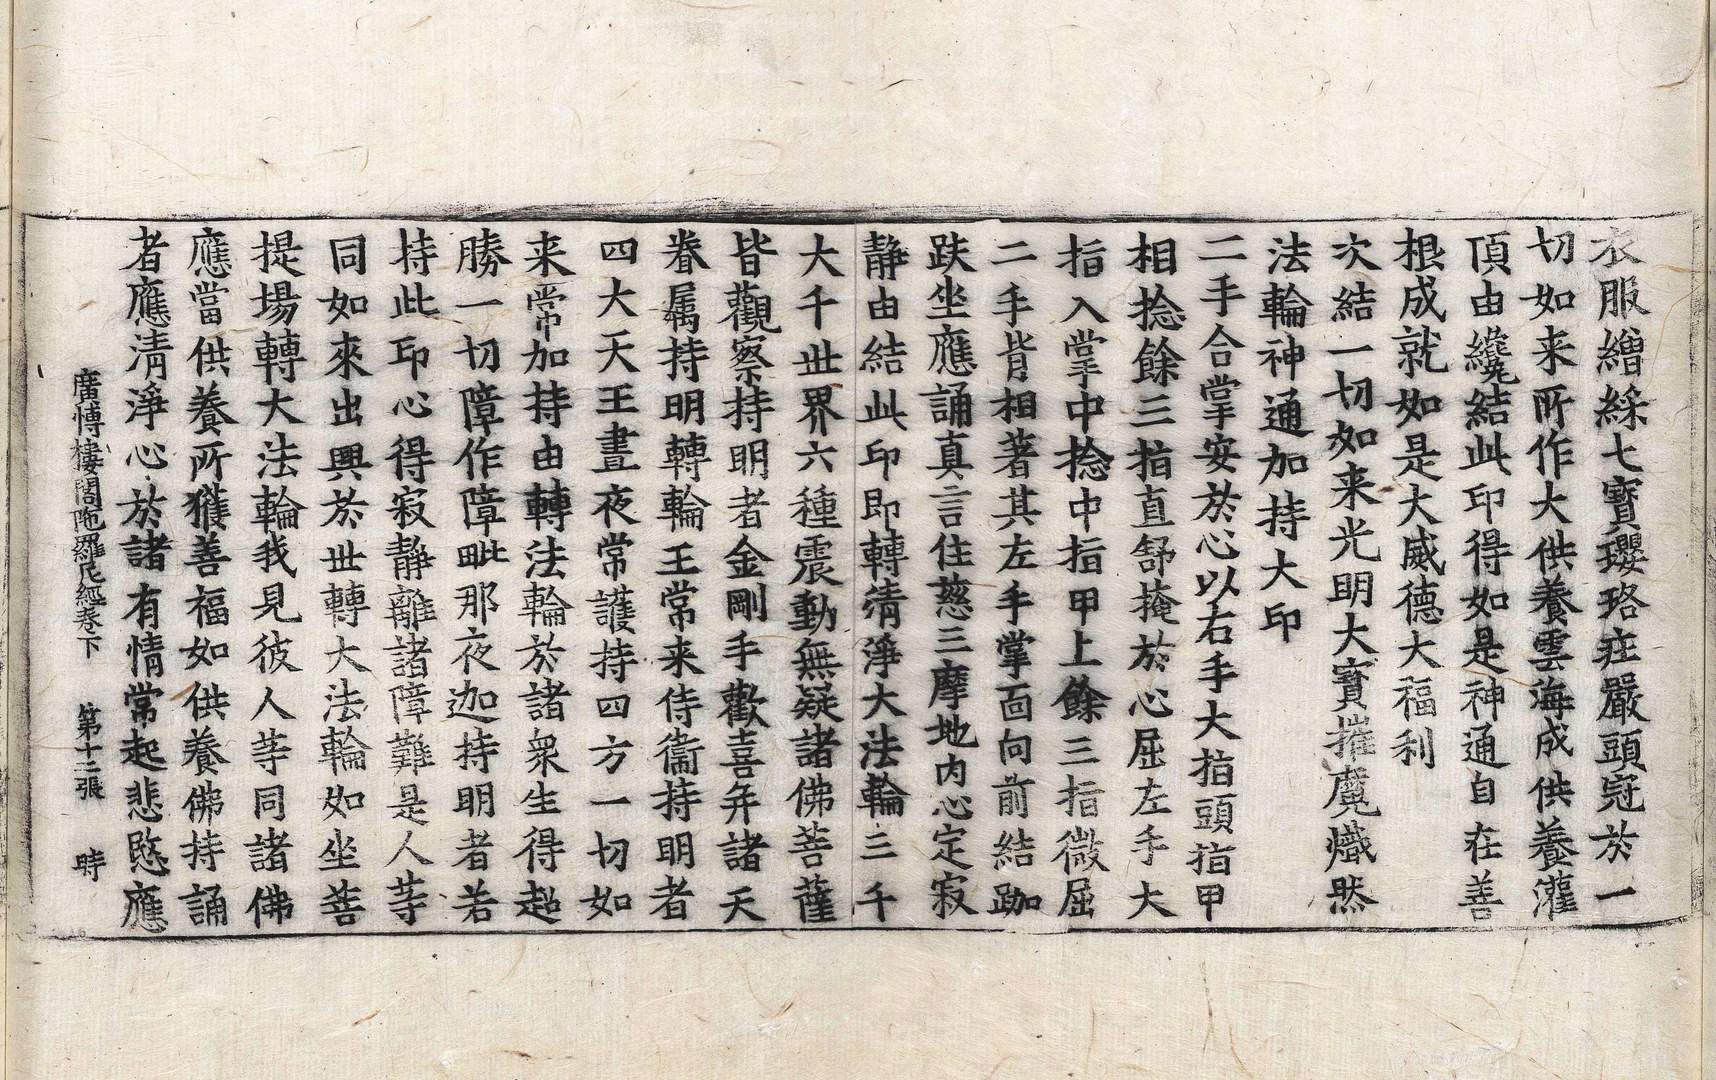 衣服繒綵七寶瓔珞莊嚴頭冠於一
切如来所作大供養雲海成供養灌
頂由纔結此印得如是神通自在善
根成就如是大威德大福利
次結一切如来光明大寶摧魔熾然
法輪神通加持大印
二手合掌安於心以右手大拇頭拇甲
相捻餘三指直舒掩於心屈左手大
指入掌中捻中指甲上餘三指微屈
二手背相著其左手掌面向前結跏
趺坐應誦真言住慈三摩地内心定寂
靜由結此印即轉清淨大法輪三千
大千世界六種震動無疑諸佛菩薩
皆觀察持明者金剛手歡喜并諸天
眷属持明轉輪王常来侍衞持明者
四大天王晝夜常護持四方一切如
来常加持由轉法輪於諸衆生得超
勝一切障作障毗那夜迦持明者若
持此印心得寂靜離諸障難是人等
同如來出興於世轉大法輪如坐菩
提場轉大法輪我見彼人等同諸佛
應當供養所獲善福如供養佛持誦
者應清淨心於諸有情常起悲愍應
廣愽樓閣陁羅尼經卷下 第十二張 時